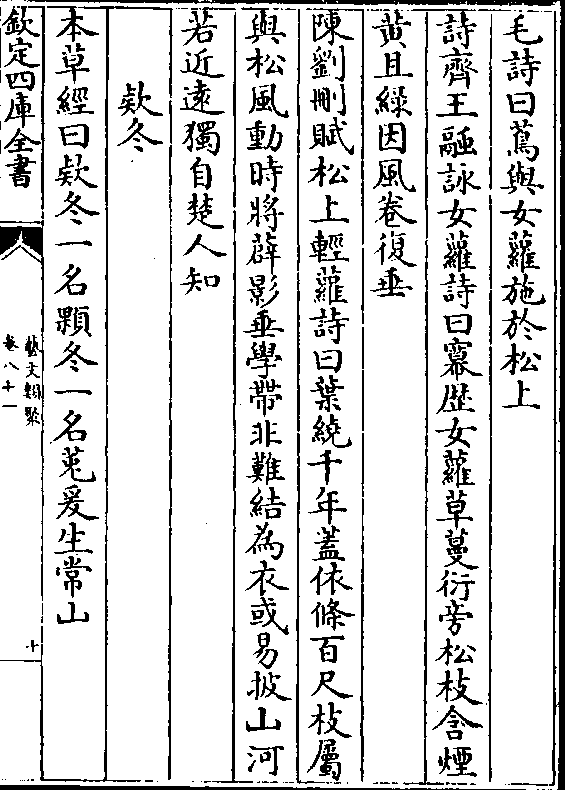 毛詩曰蔦與女蘿施於松上
詩齊王融詠女蘿詩曰羃歴女蘿草蔓衍旁松枝含煙
黄且緑因風卷復垂
陳劉刪賦松上輕蘿詩曰葉繞千年蓋依條百尺枝屬
與松風動時將薜影垂學帶非難結為衣或易披山河
若近遠獨自楚人知
欵冬
本草經曰欵冬一名顆冬一名莵爰生常山
欽定四庫全書
藝文類聚
卷八十一
十